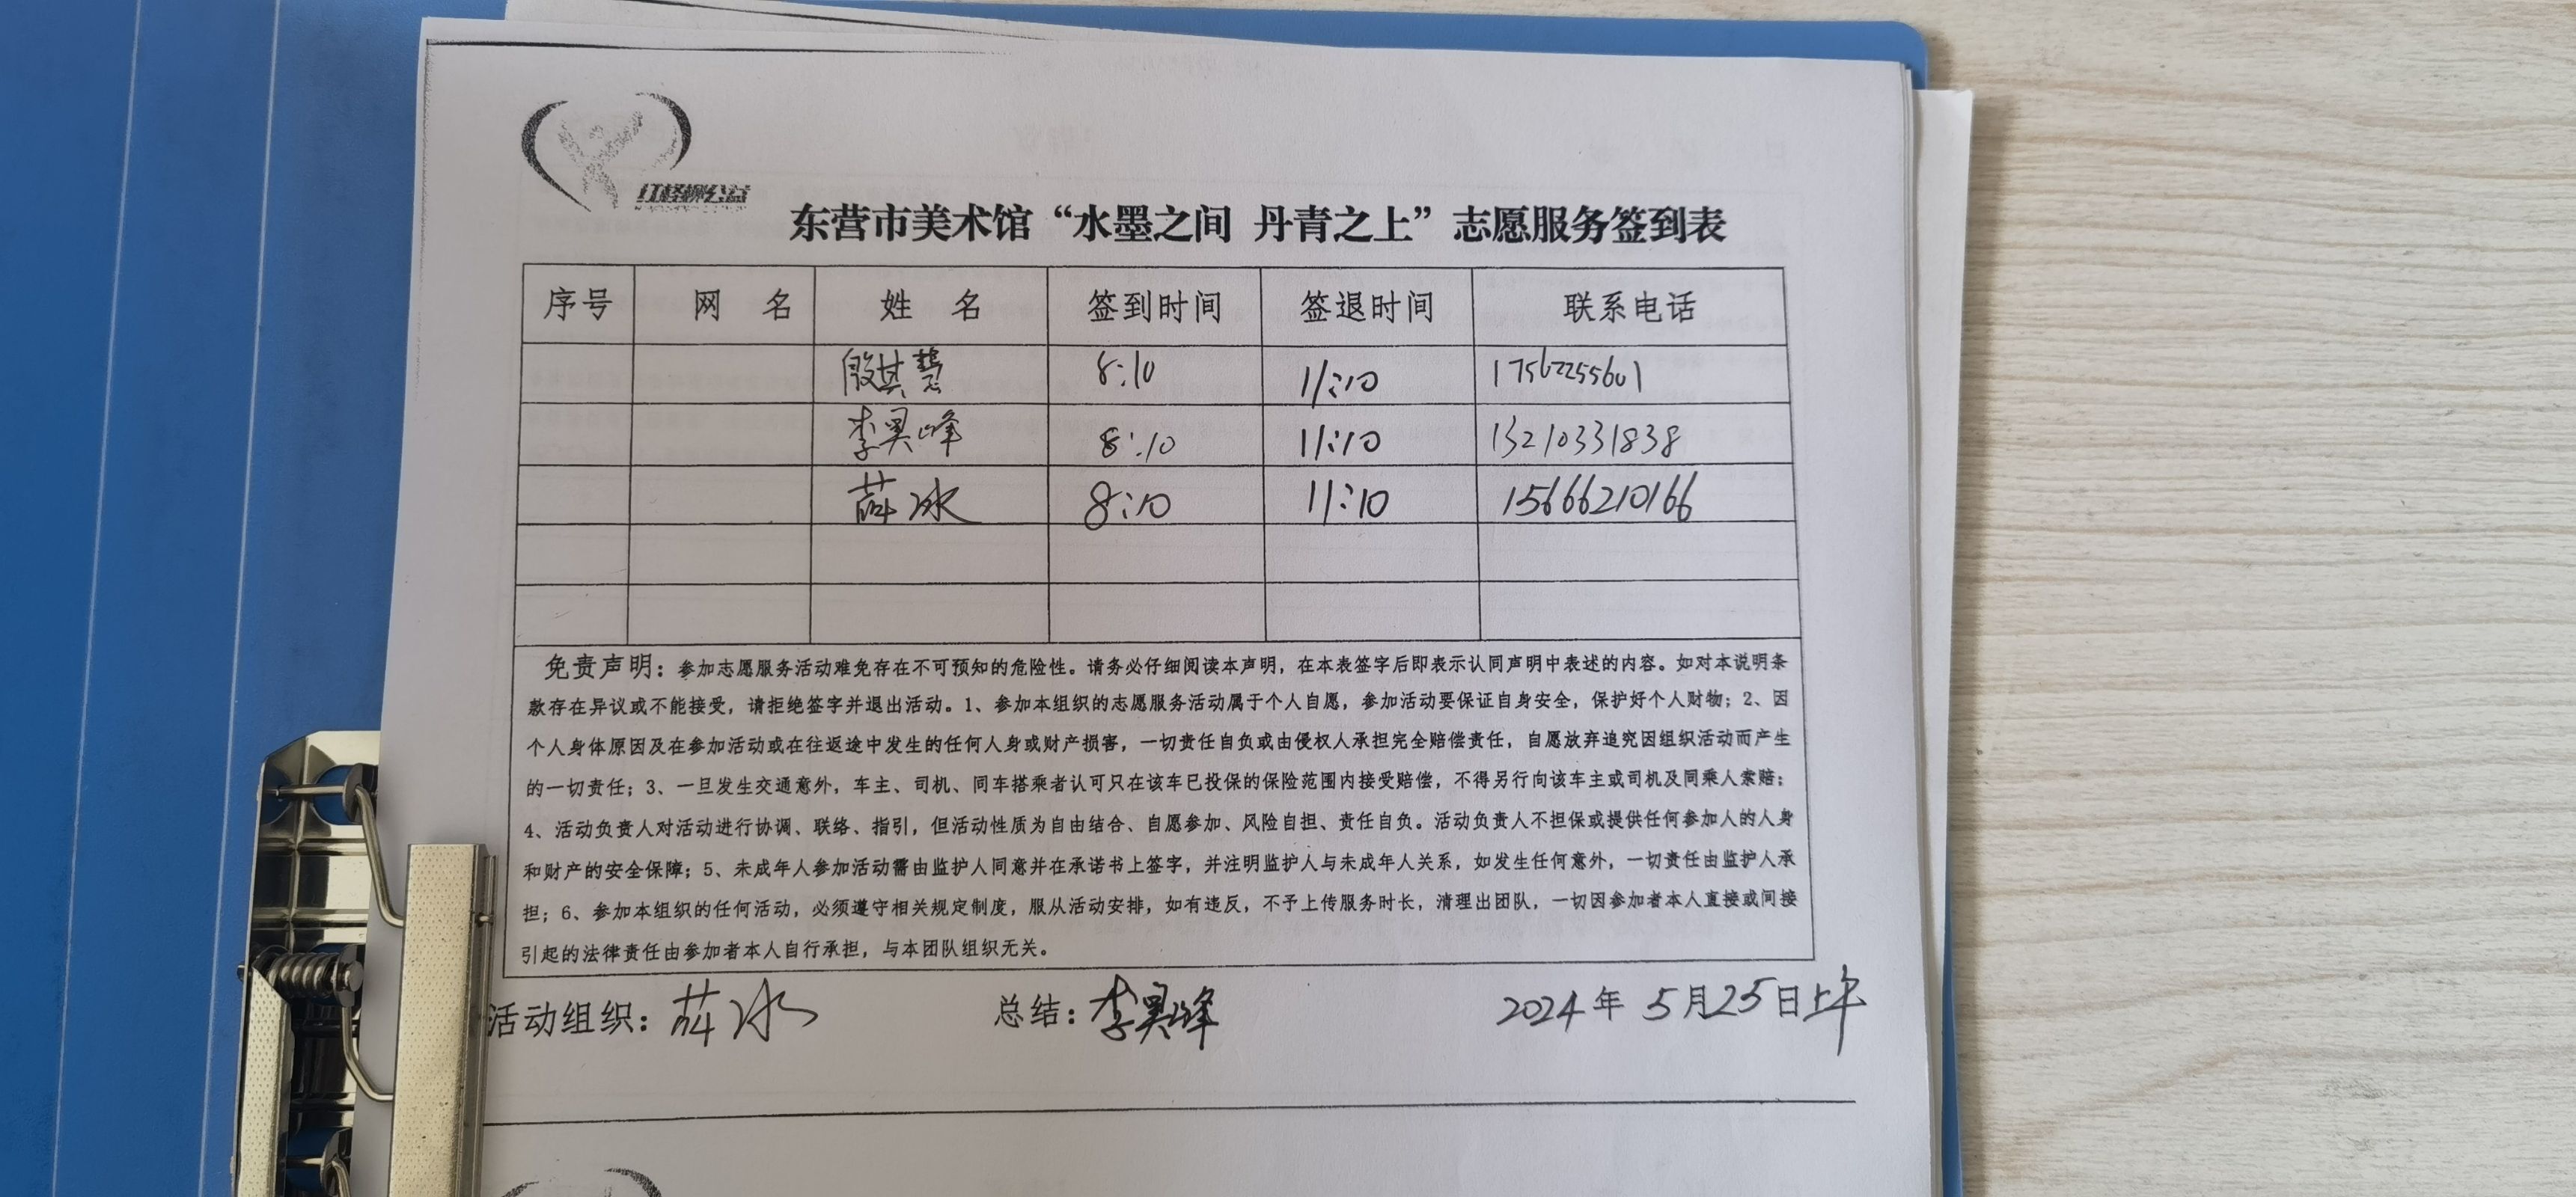 红柽柳公益
东营市美术馆“水墨之间 丹青之上”志愿服务签到表
序号 网 名 姓 名 签到时间 签退时间 联系电话
殷其慧 8:10 11:10 17562255601
李昊峰 8:10 11:10 13210331838
薛冰 8:10 11:10 15666210166
免责声明：参加志愿服务活动难免存在不可预知的危险性。请务必仔细阅读本声明，在本表签字后即表示认同声明中表述的内容。如对本说明条
款存在异议或不能接受，请拒绝签字并退出活动。1、参加本组织的志愿服务活动属于个人自愿，参加活动要保证自身安全，保护好个人财物；2、因
个人身体原因及在参加活动或在往返途中发生的任何人身或财产损害，一切责任自负或由侵权人承担完全赔偿责任，自愿放弃追究因组织活动而产生
的一切责任；3、一旦发生交通意外，车主、司机、同车搭乘者认可只在该车已投保的保险范围内接受赔偿，不得另行向该车主或司机及同乘人索赔；
4、活动负责人对活动进行协调、联络、指引，但活动性质为自由结合、自愿参加、风险自担、责任自负。活动负责人不担保或提供任何参加人的人身
和财产的安全保障；5、未成年人参加活动需由监护人同意并在承诺书上签字，并注明监护人与未成年人关系，如发生任何意外，一切责任由监护人承
担；6、参加本组织的任何活动，必须遵守相关规定制度，服从活动安排，如有违反，不予上传服务时长，清理出团队，一切因参加者本人直接或间接
引起的法律责任由参加者本人自行承担，与本团队组织无关。
活动组织：薛冰 总结：李昊峰 2024年 5月25日上午